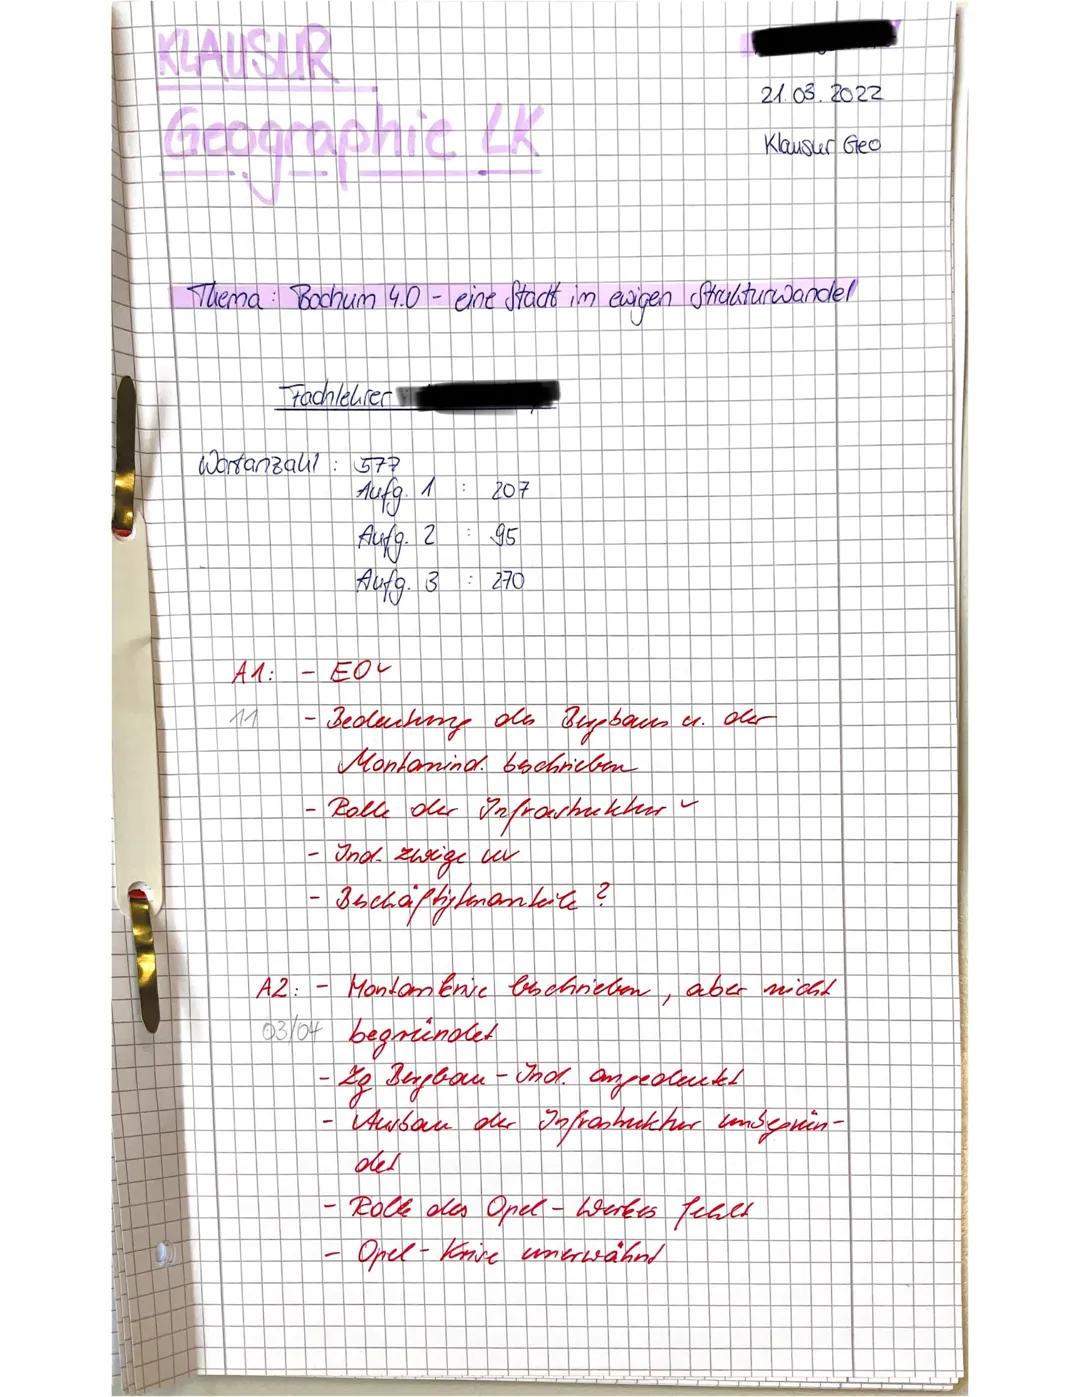 KLAUSUR
Geographie LK
21.03.2022
Klausur Geo
Thema: Bochum 4.0 - eine Stadt im ewigen Strukturwandel
Fachlehrer
Wortanzahl: 577
Aufg. 1 : 207
Aufg. 2 : 95
Aufg. 3 : 270
A1: - EO✓
11 - Bedeutung des Bergbaus u. der
Montanind. beschrieben
- Rolle der Infrastruktur ✓
- Ind. zweige
- Beschäftigtenanteile ?
A2: - Montankrise beschrieben, aber nicht
03/04 begründet
- Zg Bergbau - Ind. angedeutet
- Ausbau der Infrastruktur unbegrün-
det
- Rolle des Opel - Werkes fehlt
- Opel - Krise unerwähnt